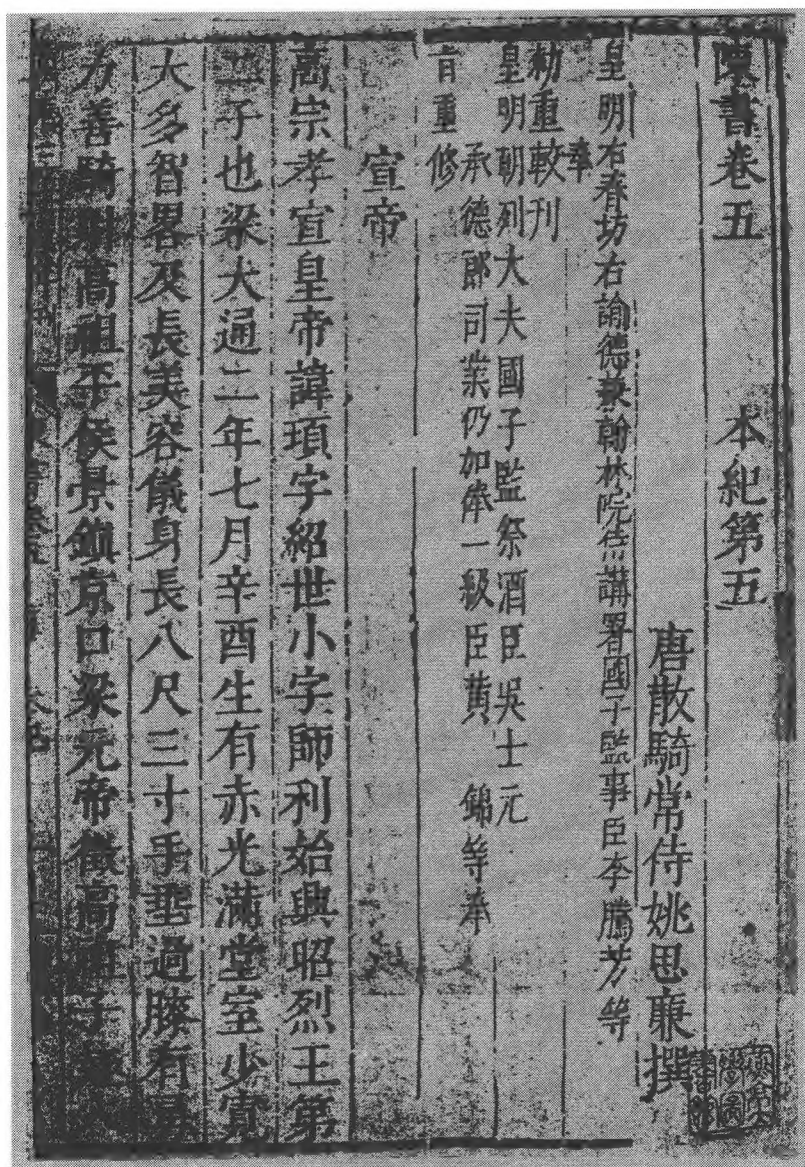 陳書卷五 本紀第五
唐散騎常侍姚思廉撰
皇明右春坊右諭德兼翰林院侍講署國子監事臣李騰芳等
奉
勑重較刊
皇明朝列大夫國子監祭酒臣吳士元
承德郎司業仍加俸一級臣黃 錦等奉
旨重修
宣帝
高宗孝宣皇帝諱頊字紹世小字師利始興昭烈王第
二子也梁大通二年七月辛酉生有赤光滿堂室少寬
大多智畧及長美容儀身長八尺三寸手垂過膝有勇
力善騎射高祖平侯景鎮京口梁元帝徵高祖子姪